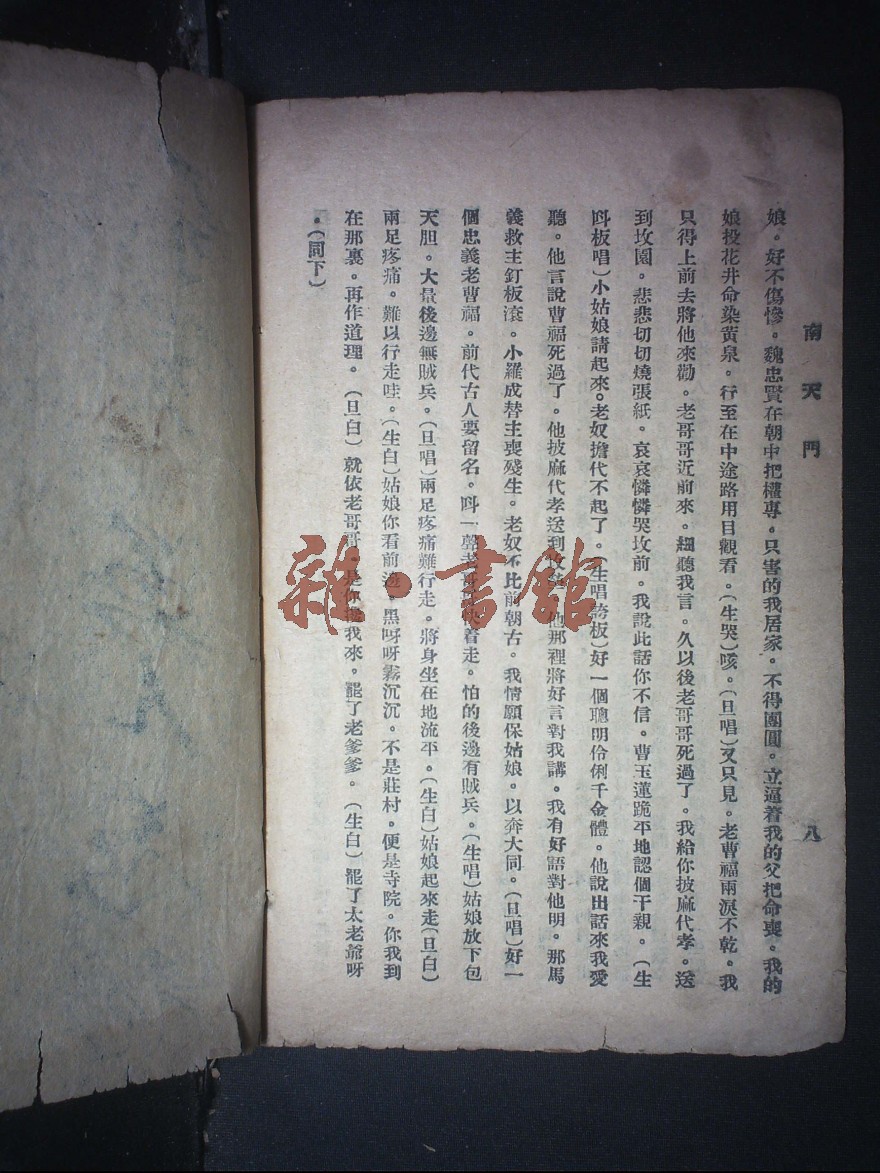 南天門
八
娘。好不傷慘。魏忠賢在朝中把權專。只害的我居家。不得團圓。立逼着我的父把命喪。我的
娘投花井命染黄泉。行至在中途路用目觀看。(生哭)咳。(旦唱)又只見。老曹福兩淚不乾。我
只得上前去將他來勸。老哥哥近前來。細聽我言。久以後老哥哥死過了。我給你披麻代孝。送
到坟園。悲悲切切燒張紙。哀哀憐憐哭坟前。我說此話你不信。曹玉蓮跪平地認個干親。(生
呌板唱)小姑娘請起來。老奴擔代不起了。(生唱誇板)好一個聰明伶俐千金體。他說出話來我愛
聽。他言說曹福死過了。他披麻代孝送到坟 他那裡將好言對我講。我有好語對他明。那馬
義救主釘板滚。小羅成替主喪殘生。老奴不比前朝古。我情願保姑娘。以奔大同。(旦唱)好一
個忠義老曹福。前代古人要留名。呌一聲老哥 快着走。怕的後邊有賊兵。(生唱)姑娘放下包
天胆。大量後邊無賊兵。(旦唱)兩足疼痛難行走。將身坐在地流平。(生白)姑娘起來走(旦白)
兩足疼痛。難以行走哇。(生白)姑娘你看前邊。黑呀呀霧沉沉。不是莊村。便是寺院。你我到
在那裏。再作道理。(旦白)就依老哥哥。是你 我來。罷了老爹爹。(生白)罷了太老爺呀
。(同下)
雜·書館